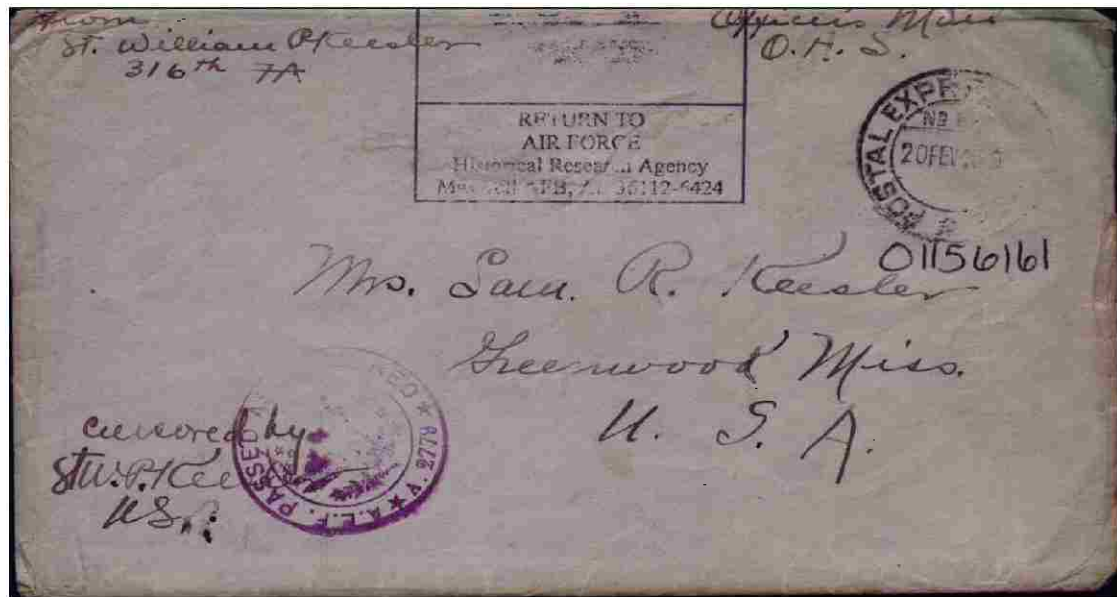 From
St. William P Keesler
316th FA
Officer's Mail
O.H.S.
RETURN TO
AIR FORCE
Historical Research Agency
Maxwell AFB, AL 36112-6424
POSTAL EXPRE
NO
20 FEV
01156161
Mrs. Sam. R. Keesler
Greenwood Miss.
U. S. A.
censored by
St W.P. Kee
U.S.
A.E.F. PASSED